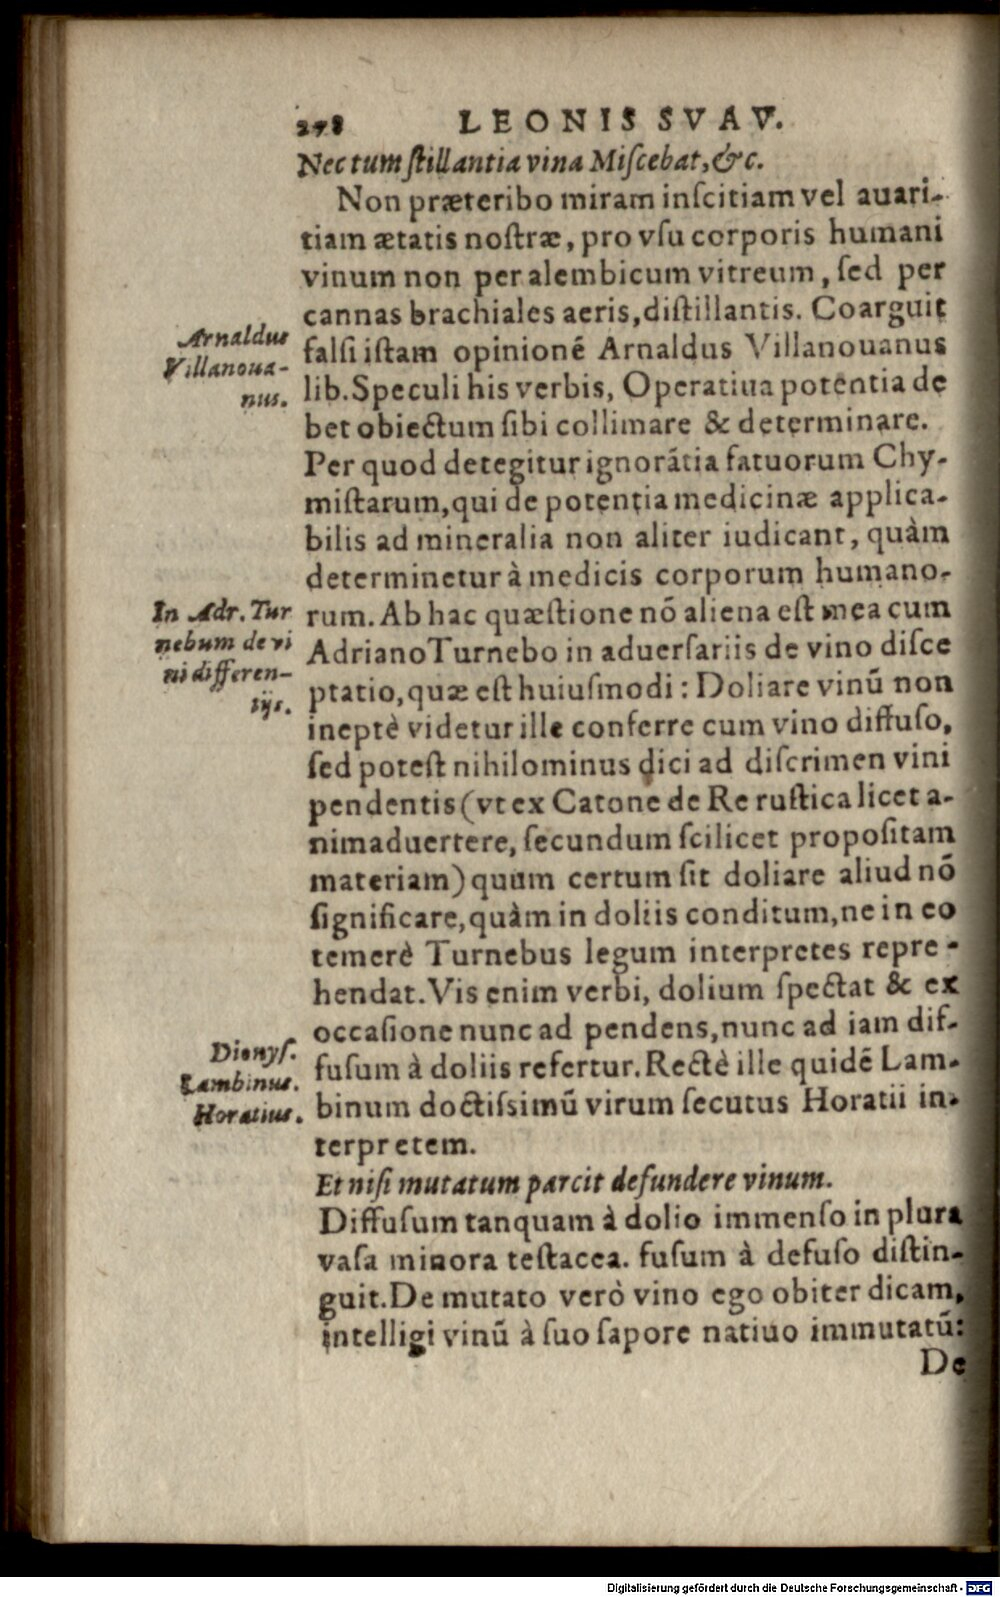 278 LEONIS SVAV.
Nec tum ſtillantia vina Miſcebat, &c.
Non præteribo miram inſcitiam vel auari-
tiam ætatis noſtræ, pro vſu corporis humani
vinum non per alembicum vitreum, ſed per
cannas brachiales aeris, diſtillantis. Coarguit
Arnaldus
falſi iſtam opinionē Arnaldus Villanouanus
Villanoua-
lib. Speculi his verbis, Operatiua potentia de
nus.
bet obiectum ſibi collimare & determinare.
Per quod detegitur ignorātia fatuorum Chy-
miſtarum, qui de potentia medicinæ applica-
bilis ad mineralia non aliter iudicant, quàm
determinetur à medicis corporum humano-
In Adr. Tur
rum. Ab hac quæſtione nō aliena eſt mea cum
nebum de vi
Adriano Turnebo in aduerſariis de vino diſce
ni differen-
ptatio, quæ eſt huiuſmodi : Doliare vinū non
tijs.
ineptè videtur ille conferre cum vino diffuſo,
ſed poteſt nihilominus dici ad diſcrimen vini
pendentis (vt ex Catone de Re ruſtica licet a-
nimaduertere, ſecundum ſcilicet propoſitam
materiam) quum certum ſit doliare aliud nō
ſignificare, quàm in doliis conditum, ne in eo
temerè Turnebus legum interpretes repre-
hendat. Vis enim verbi, dolium ſpectat & ex
occaſione nunc ad pendens, nunc ad iam dif-
Dionyſ.
fuſum à doliis refertur. Rectè ille quidē Lam-
Lambinus.
binum doctiſsimū virum ſecutus Horatii in-
Horatius.
terpretem.
Et niſi mutatum parcit defundere vinum.
Diffuſum tanquam à dolio immenſo in plura
vaſa minora teſtacea. fuſum à defuſo diſtin-
guit. De mutato verò vino ego obiter dicam,
intelligi vinū à ſuo ſapore natiuo immutatū:
De
Digitalisierung gefördert durch die Deutsche Forschungsgemeinschaft - DFG